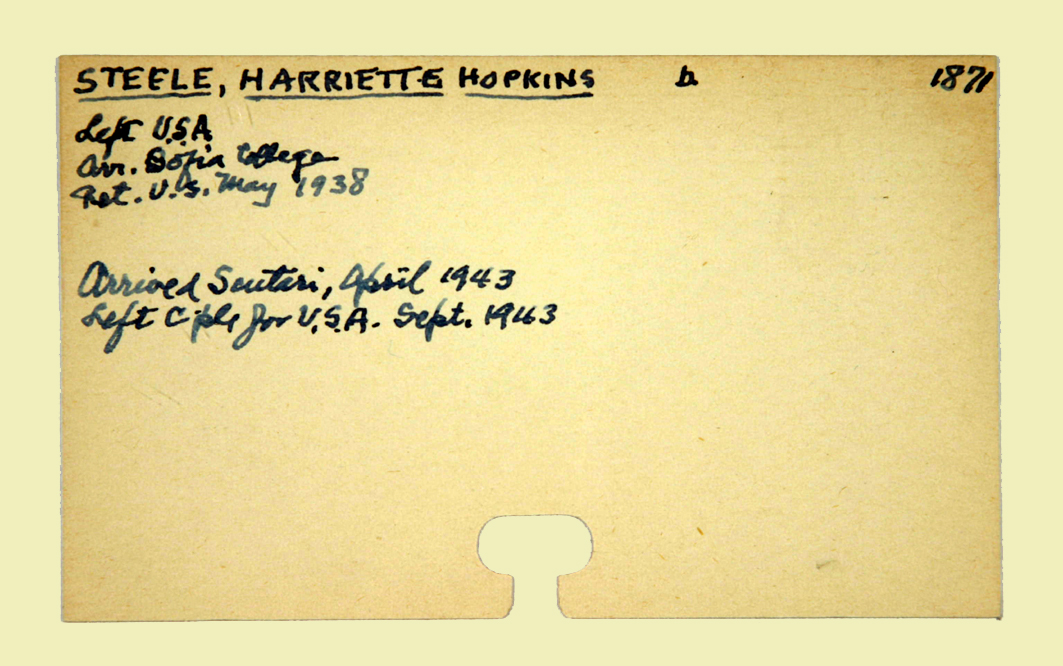 STEELE, HARRIETTE HOPKINS b. 1871
Left U.S.A.
Arr. Sofia College
Ret. U.S. May 1938
Arrived Scutari, April 1943
Left C'ple for U.S.A. Sept. 1943